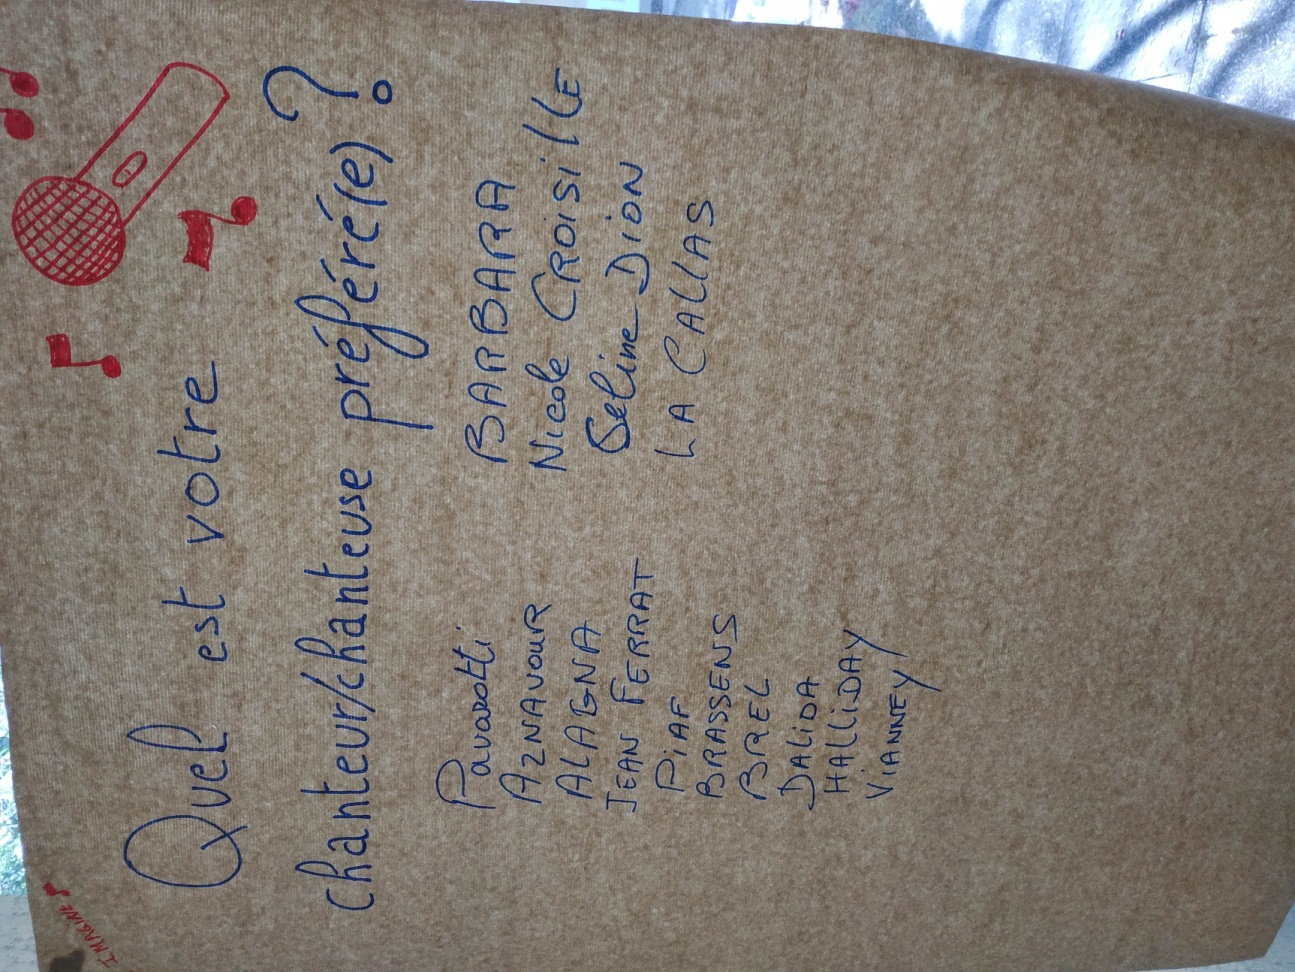 IMAGINE
Quel est votre
chanteur/chanteuse préféré(e) ?
Pavarotti
AZNAVOUR
ALAGNA
JEAN FERRAT
PiAF
BRASSENS
BREL
DALiDA
HALLiDAY
ViANNEY
BARBARA
Nicole CROiSillE
Seline DiON
LA CALLAS